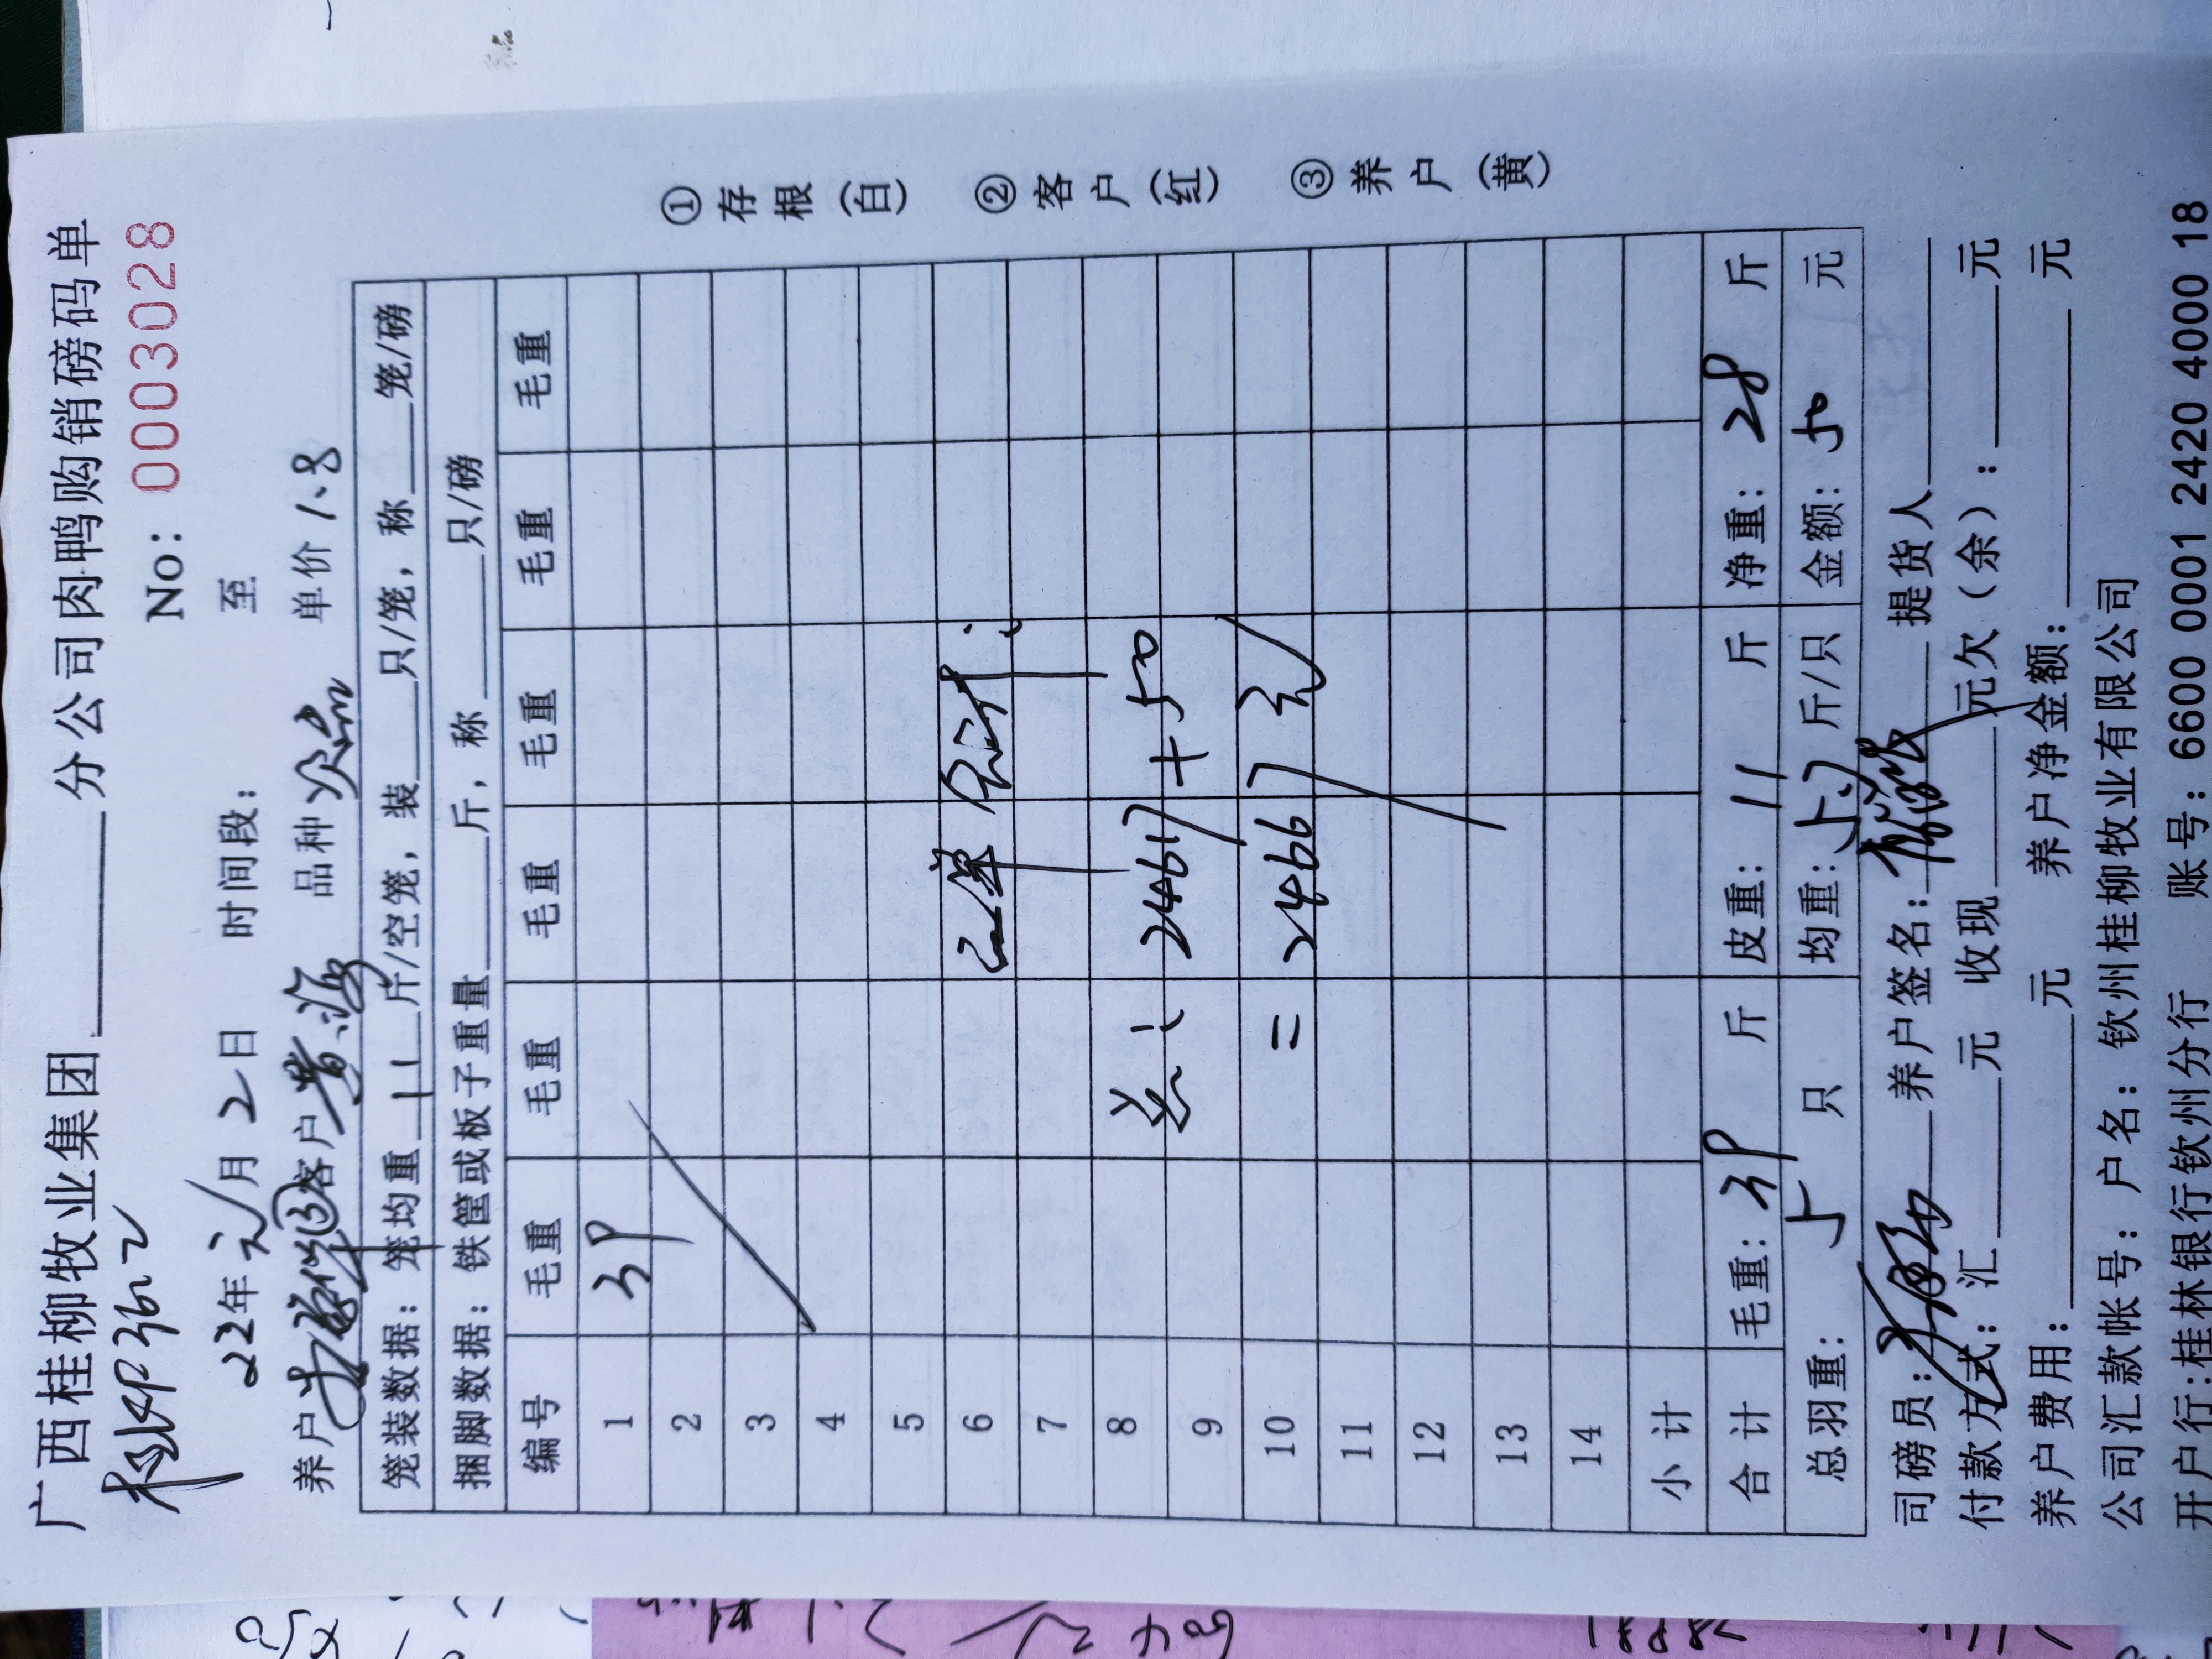 广西桂柳牧业集团 分公司肉鸭购销磅码单
No: 0003028
22年元月2日 时间段: 至
养户 ③ 客户 黄海 品种 次品 单价 1.8
笼装数据: 笼均重 11 斤/空笼, 装 只/笼, 称 笼/磅
捆脚数据: 铁筐或板子重量 斤, 称 只/磅
编号 毛重 毛重 毛重 毛重 毛重 毛重
1 39
2
3
4
5
6 2单合计:
7
8 共: 24617+50
9
10 =24667元
11
12
13
14
小计
合计 毛重: 39 斤 皮重: 11 斤 净重: 28 斤
总羽重: 5 只 均重: 斤/只 金额: 50 元
司磅员: 养户签名: 提货人
付款方式: 汇 元 收现 元欠(余): 元
养户费用: 元 养户净金额: 元
公司汇款帐号: 户名: 钦州桂柳牧业有限公司
开户行:桂林银行钦州分行 账号: 6600 0001 2420 4000 18
①存根(白) ②客户(红) ③养户(黄)